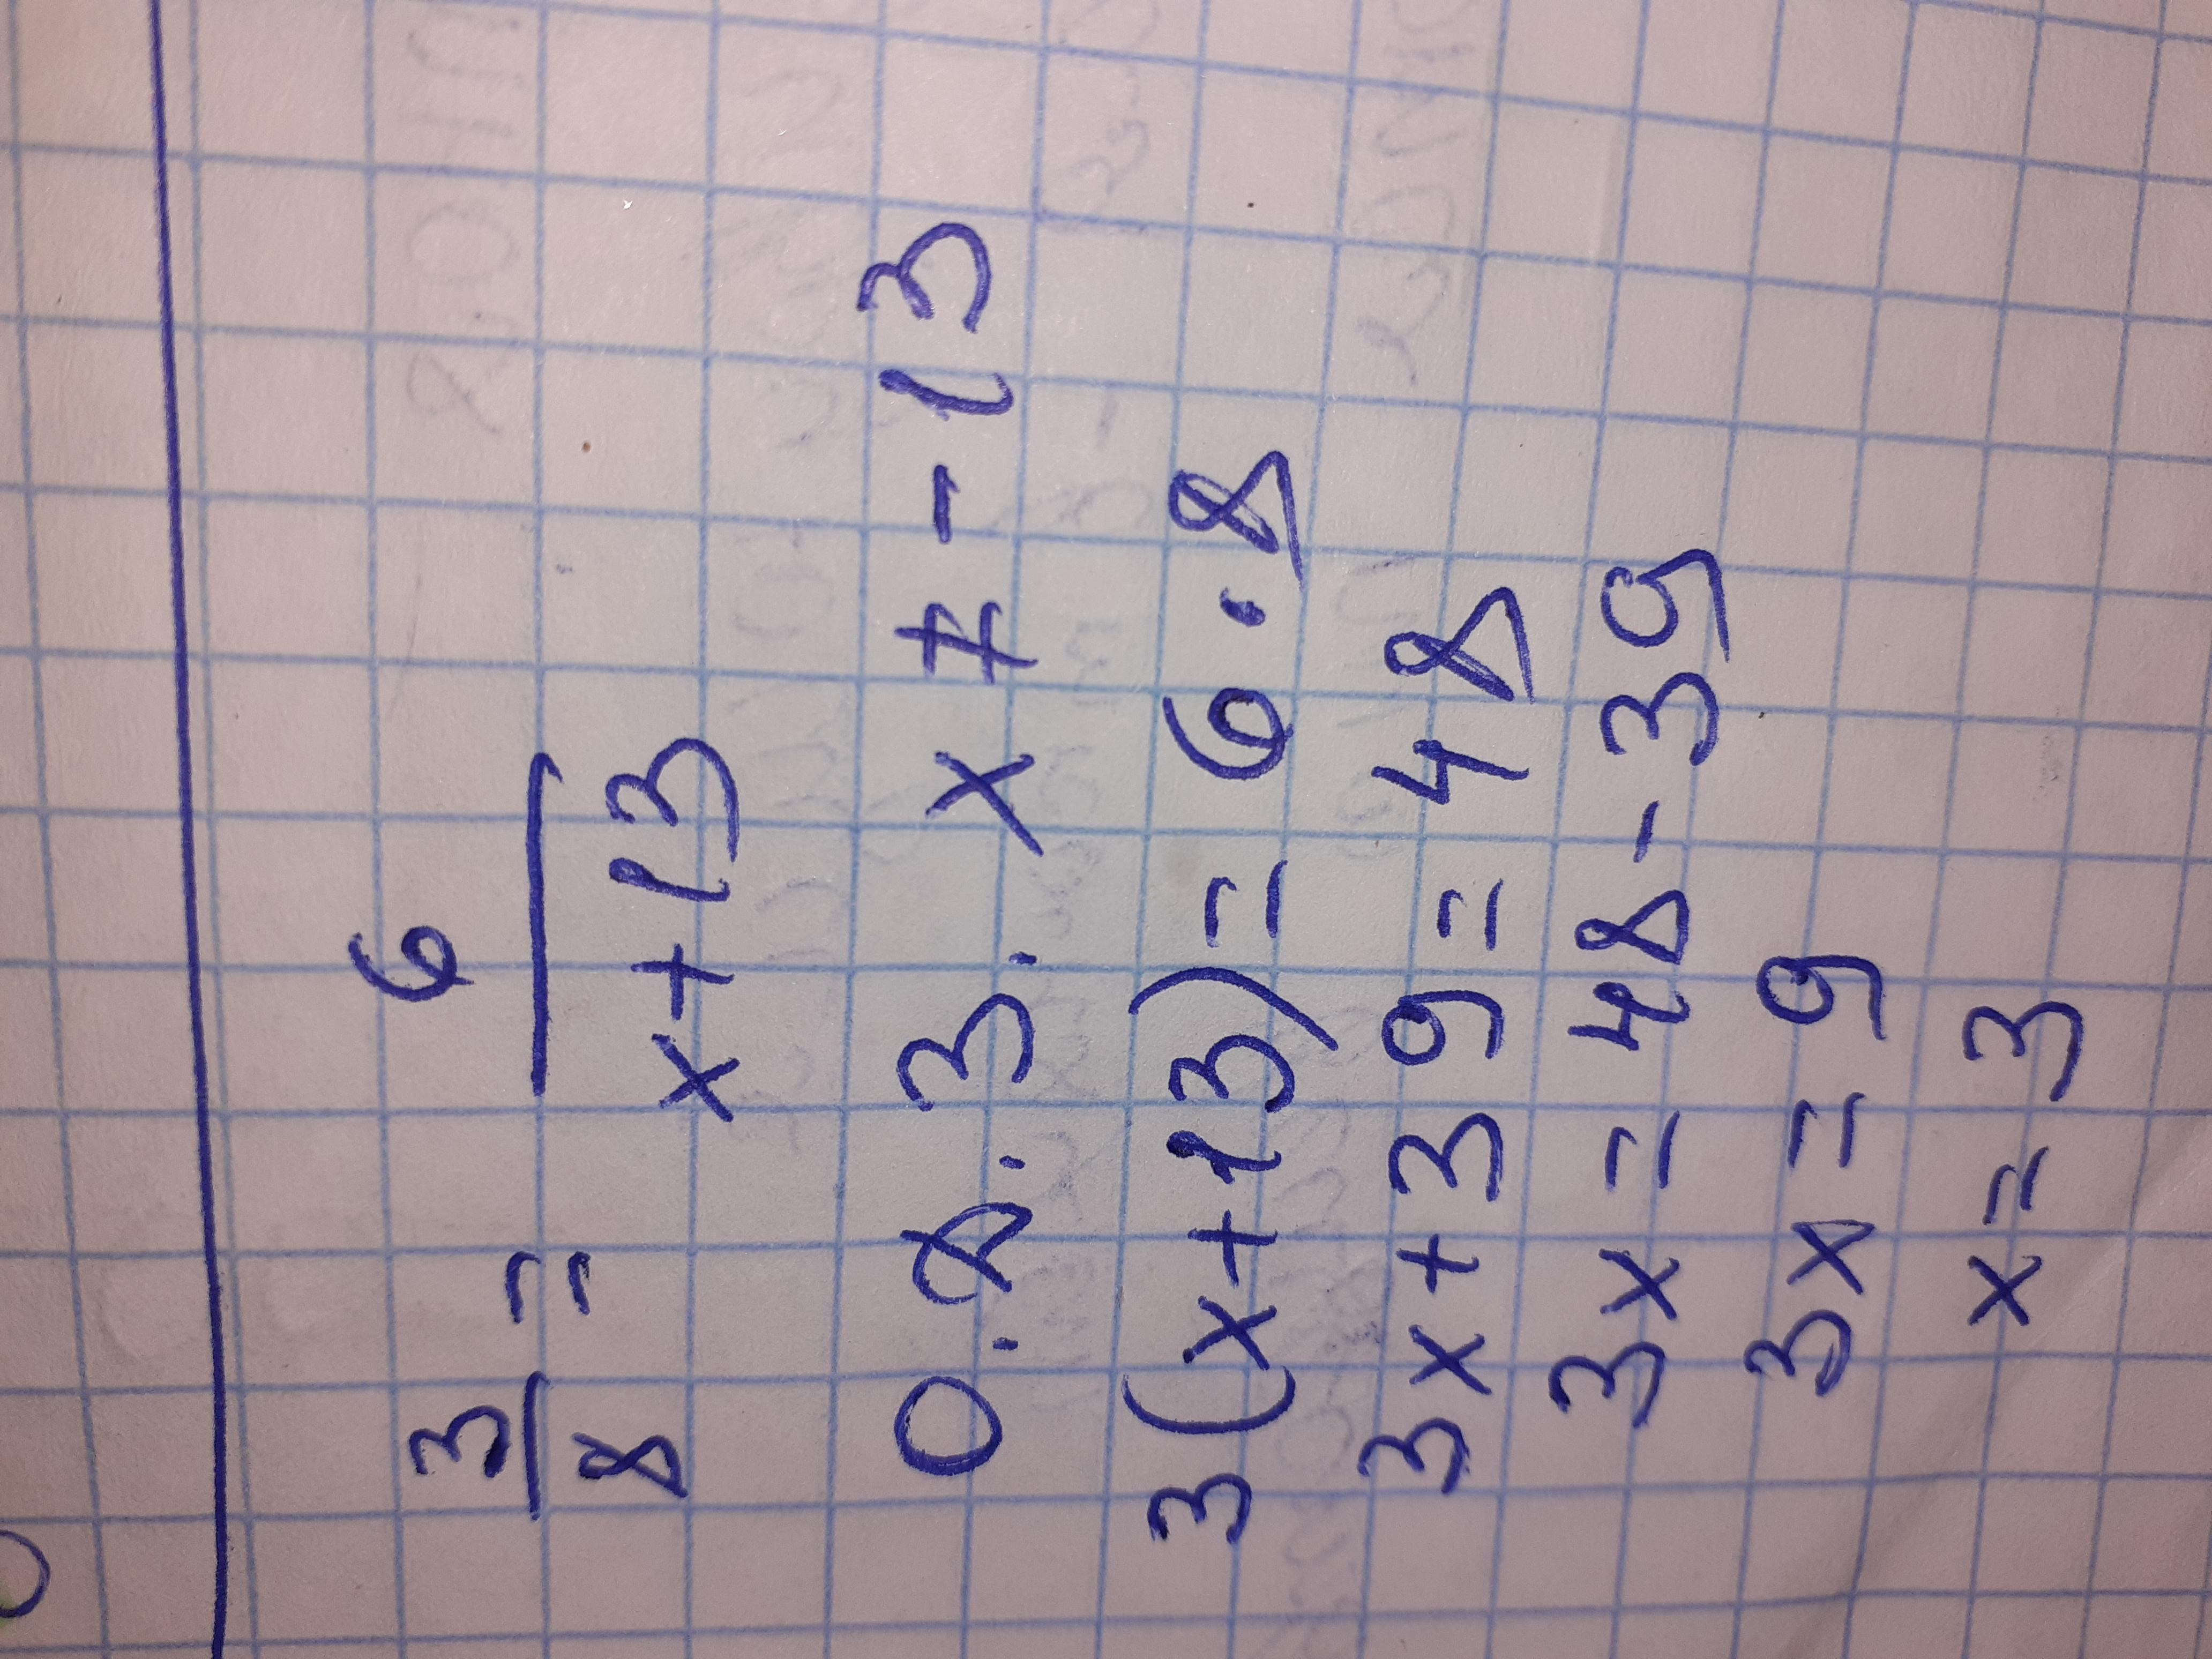 3/8 = 6/(x+13)
О.Д.З. x ≠ -13
3(x+13)=6·8
3x+39=48
3x=48-39
3x=9
x=3